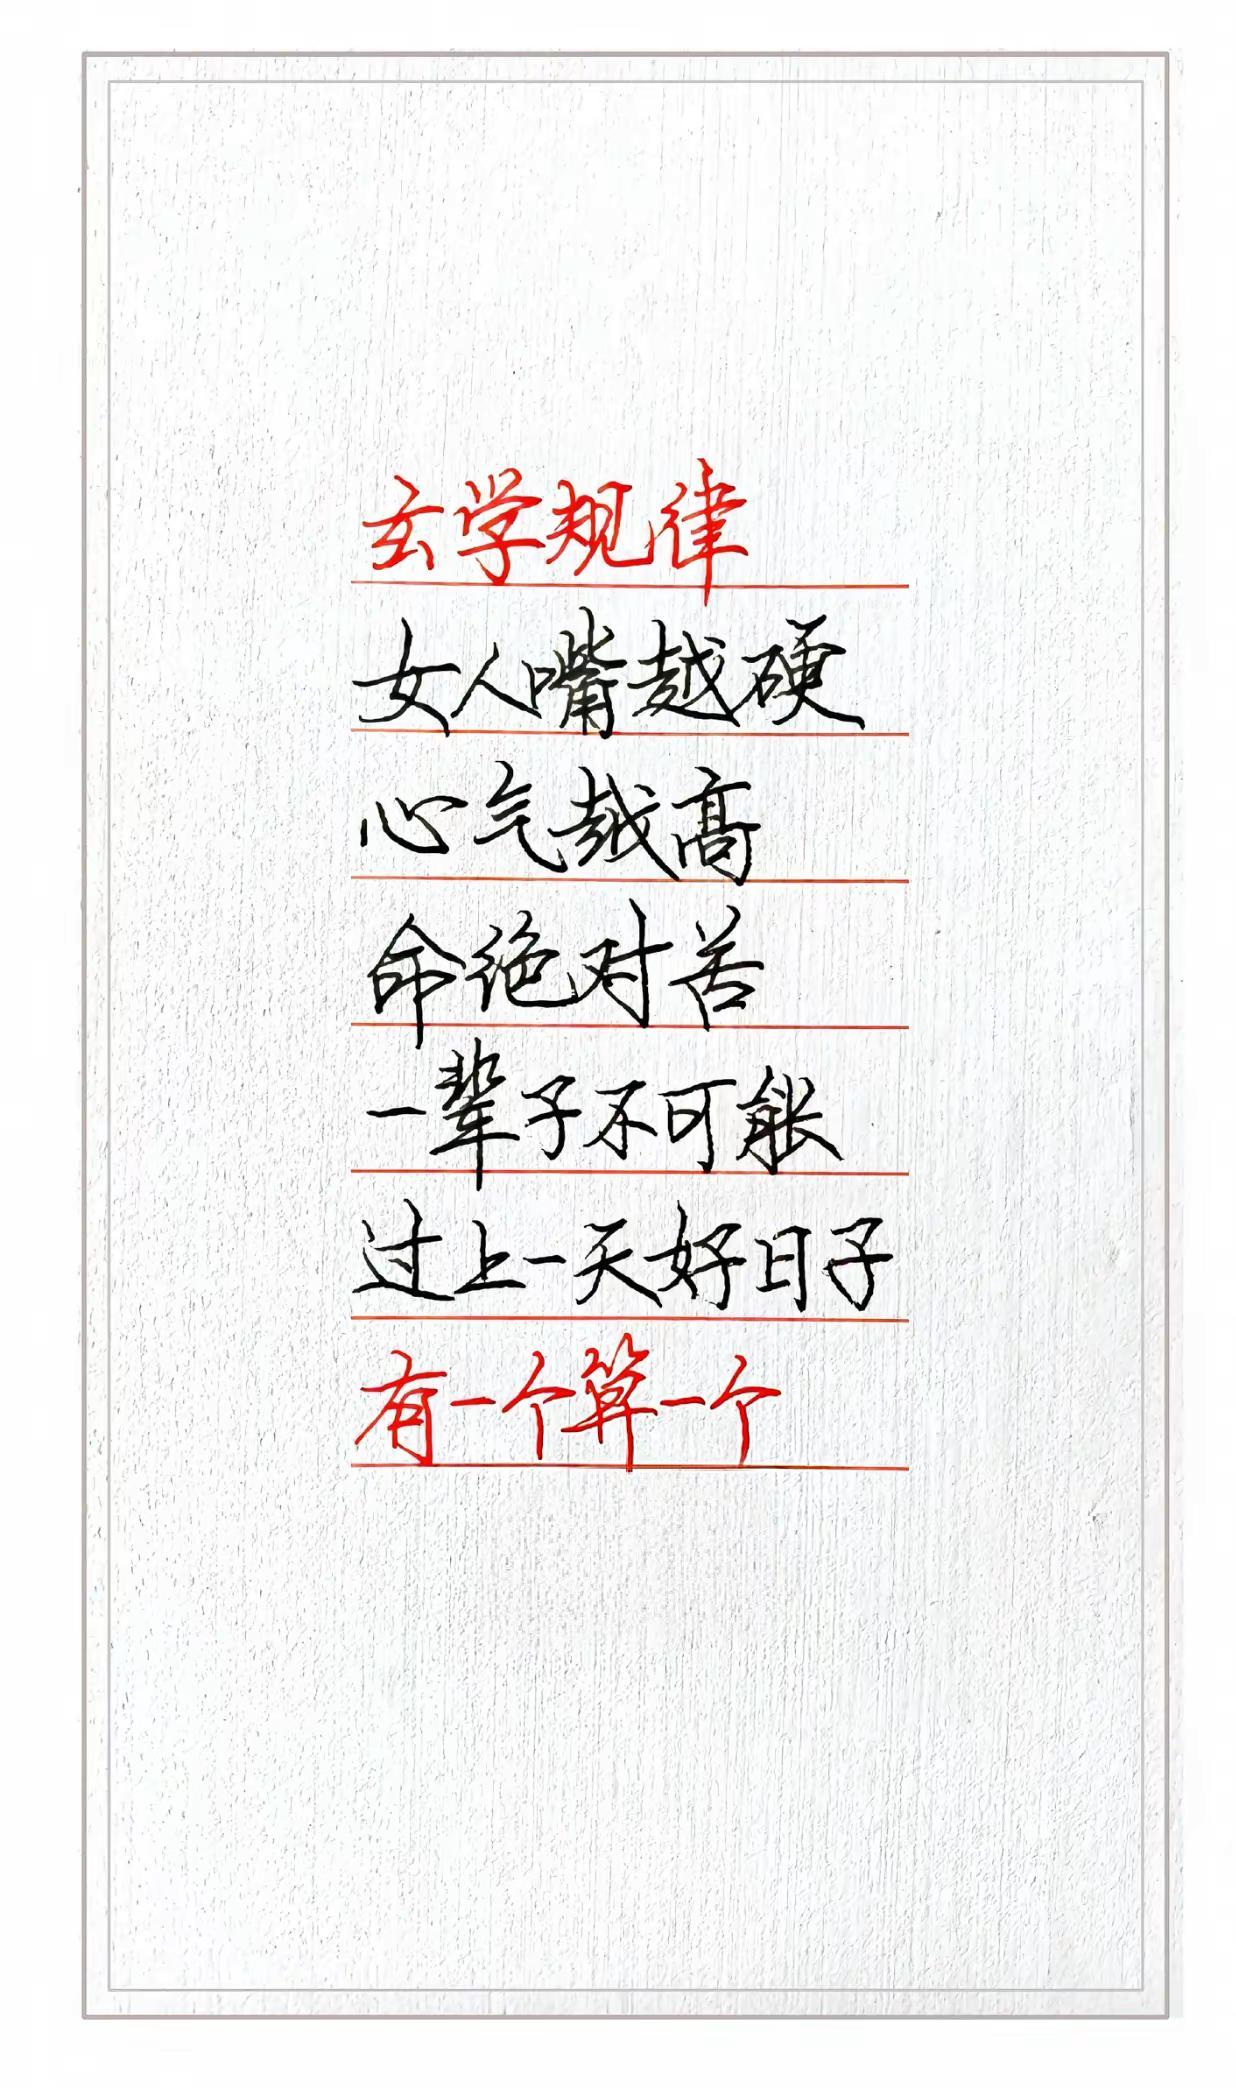 玄学规律
女人嘴越硬
心气越高
命绝对苦
一辈子不可能
过上一天好日子
有一个算一个